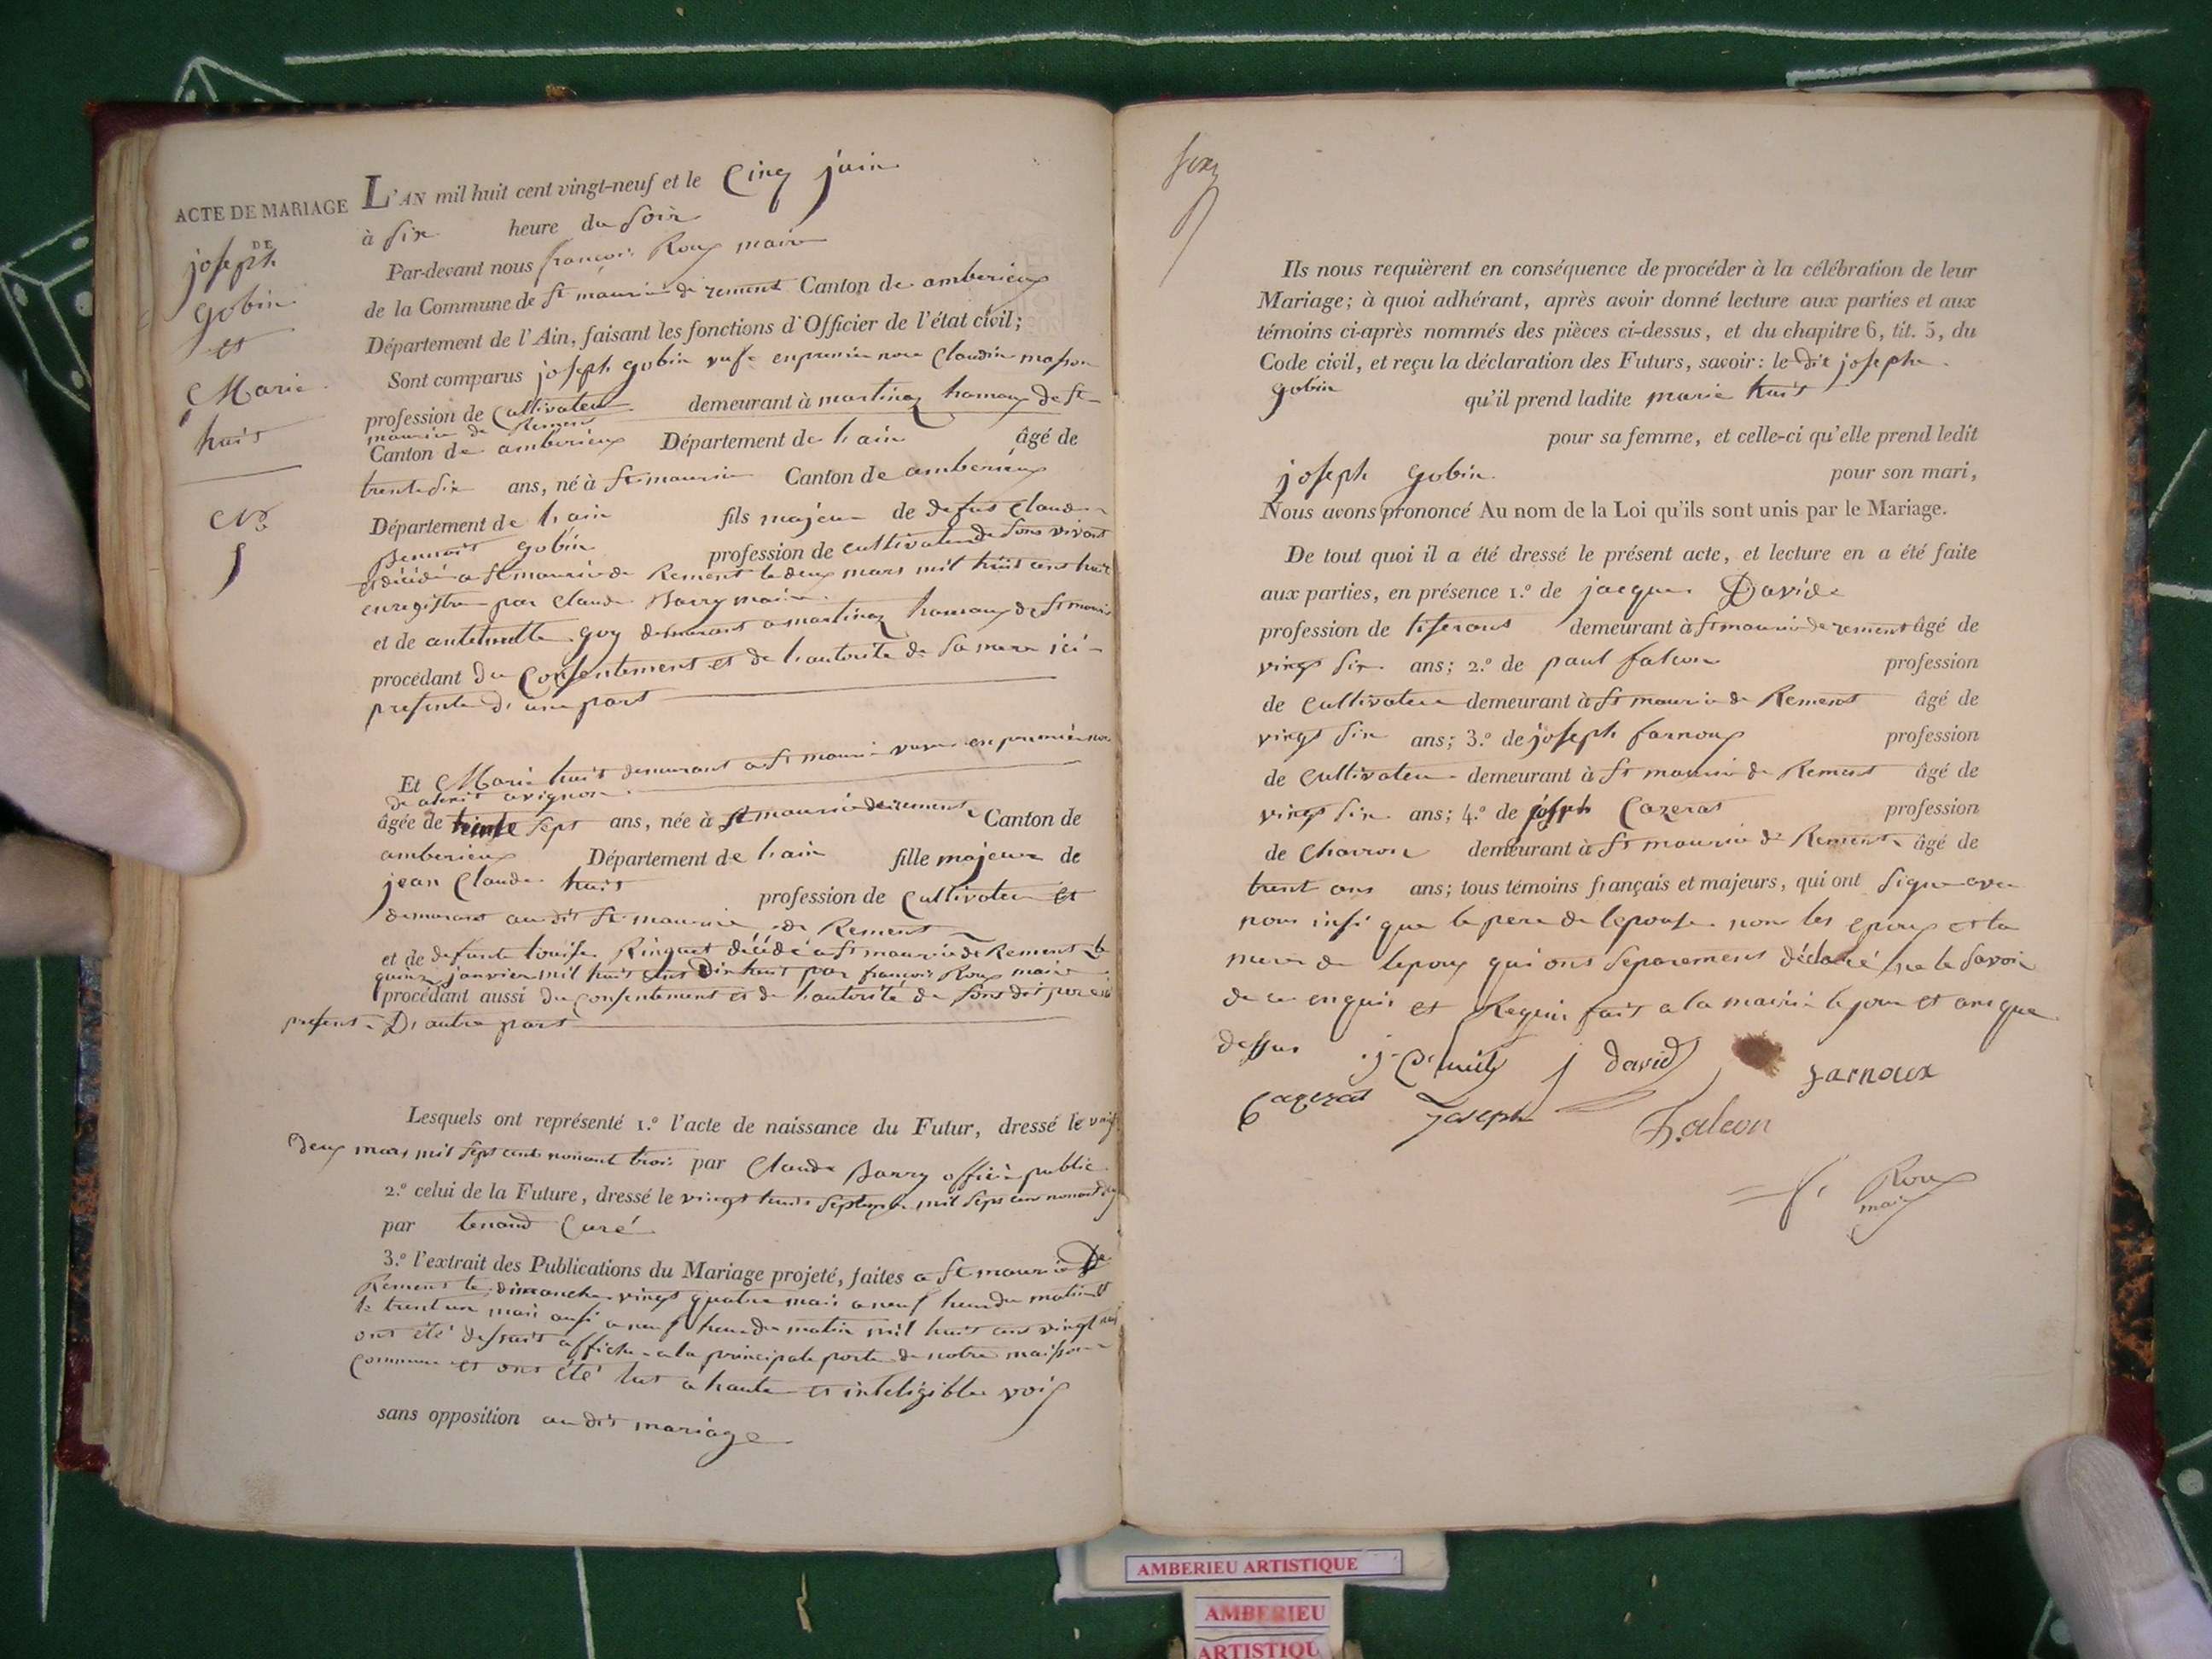 ACTE DE MARIAGE
DE
joseph
gobin
et
Marie
huit
N.o
5
L'AN mil huit cent vingt-neuf et le Cinq juin
à six heure du soir
Par-devant nous françois Roux maire
de la Commune de st maurice de rement Canton de amberieux
Département de l'Ain, faisant les fonctions d'Officier de l'état civil;
Sont comparus joseph gobin en premier noce Claudine masson
profession de Cultivateur demeurant à martinaz hamaux de st
maurice de Rement
Canton de amberieux Département de l'ain âgé de
trente six ans, né à St maurice Canton de amberieux
Département de l'ain fils majeur de defus Claude
Bennoit gobin profession de cultivateur de sons vivant
et décédé a st maurice de Rement le deux mars mil huit cens huit
enregistre par Claude Barry maire
et de antelmette goy demeurant a martinaz hamaux de st mauri
procédant du Consentement et de l'autorité de sa mere ici
presente d'une part
Et Marie huit demeurant a st mauri veuve en premier noce
de alexis avignon
âgée de trente sept ans, née à st maurice de rement Canton de
amberieux Département de l'ain fille majeure de
jean Claude huit profession de Cultivateur et
demeurant au dit st maurice de Rement
et de defunte louise Ringuet décédé a st maurice de Rement le
quinz janvier mil huit cens dix huit par françois Roux maire
procédant aussi du consentement et de l'autorité de sons dit pere ici
present D'autre part
Lesquels ont représenté 1.º l'acte de naissance du Futur, dressé le vingt
deux mars mil sept cent nonant trois par Claude Barry officié public
2.º celui de la Future, dressé le vingt huit septembre mil sept cen nonant
par tenand Curé
3.º l'extrait des Publications du Mariage projeté, faites a st maurice De
Rement le dimanche vingt quatre mai a neuf heur du matin et
le trent un mai ausi a neuf heur du matin mil huit cens vingt neuf
ont été affiche a la principale porte de notre maison
Commune et ont été lut a haute et inteligible voix
sans opposition au dit mariage
Ils nous requièrent en conséquence de procéder à la célébration de leur
Mariage; à quoi adhérant, après avoir donné lecture aux parties et aux
témoins ci-après nommés des pièces ci-dessus, et du chapitre 6, tit. 5, du
Code civil, et reçu la déclaration des Futurs, savoir: le dit joseph
gobin qu'il prend ladite marie huit
pour sa femme, et celle-ci qu'elle prend ledit
joseph gobin pour son mari,
Nous avons prononcé Au nom de la Loi qu'ils sont unis par le Mariage.
De tout quoi il a été dressé le présent acte, et lecture en a été faite
aux parties, en présence 1.º de jacque David
profession de tiserant demeurant à st maurice de rement âgé de
vingt six ans; 2.º de paul falcon profession
de Cultivateur demeurant à st maurice de Rement âgé de
vingt six ans; 3.º de joseph farnoux profession
de Cultivateur demeurant à st maurice de Rement âgé de
vingt six ans; 4.º de joseph Cazerat profession
de Charron demeurant à st maurice de Rement âgé de
trent ans ans; tous témoins français et majeurs, qui ont signe avec
nous insi que le pere de lepouse non les epoux et la
mere de lepoux qui ont separement déclaré ne le savoir
de ce enquis et Requis fait a la mairie le jour et ans que
dessus j C huit j david farnoux
Cazerat Joseph falcon
f. Roux
maire
AMBERIEU ARTISTIQUE
AMBERIEU
ARTISTIQU